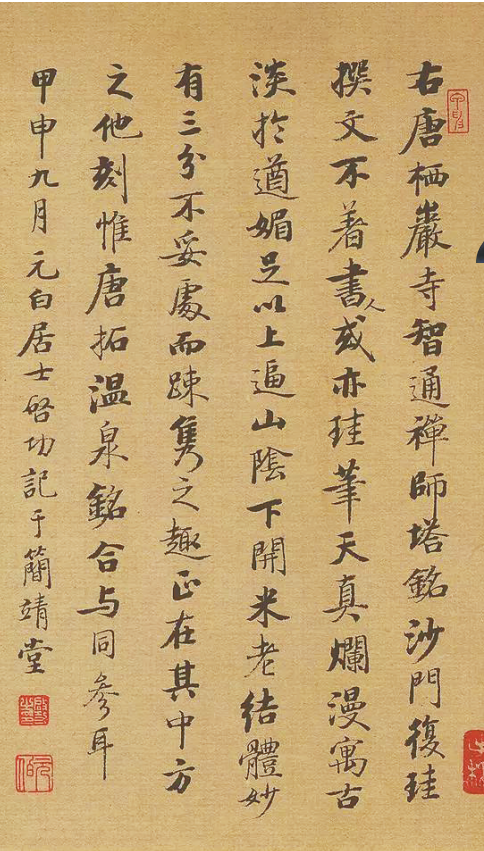 右唐栖巖寺智通禪師塔銘沙門復珪
撰文不著書人或亦珪筆天真爛漫寓古
淡於遒媚足以上逼山陰下開米老結體妙
有三分不妥處而踈雋之趣正在其中方
之他刻惟唐拓温泉銘合与同參耳
甲申九月元白居士啓功記于簡靖堂
啟功
元伯